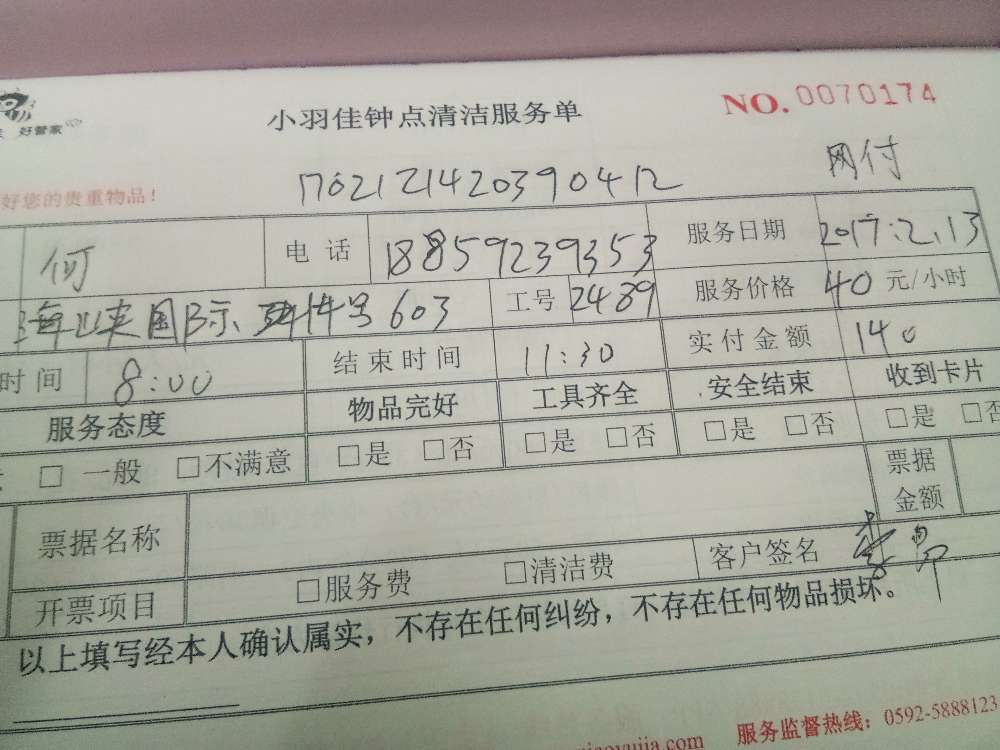 好管家
小羽佳钟点清洁服务单 NO.0070174
好您的贵重物品！ 1702121420390412 网付
何 电话 18859239353 服务日期 2017.2.13
海峡国际 号603 工号 2489 服务价格 40元/小时
时间 8:00 结束时间 11:30 实付金额 140
服务态度 物品完好 工具齐全 安全结束 收到卡片
□ 一般 □不满意 □是 □否 □是 □否 □是 □否 □是 □否
票据名称 票据金额
开票项目 □服务费 □清洁费 客户签名
以上填写经本人确认属实，不存在任何纠纷，不存在任何物品损坏。
服务监督热线：0592-5888123
xiaoyujia.com